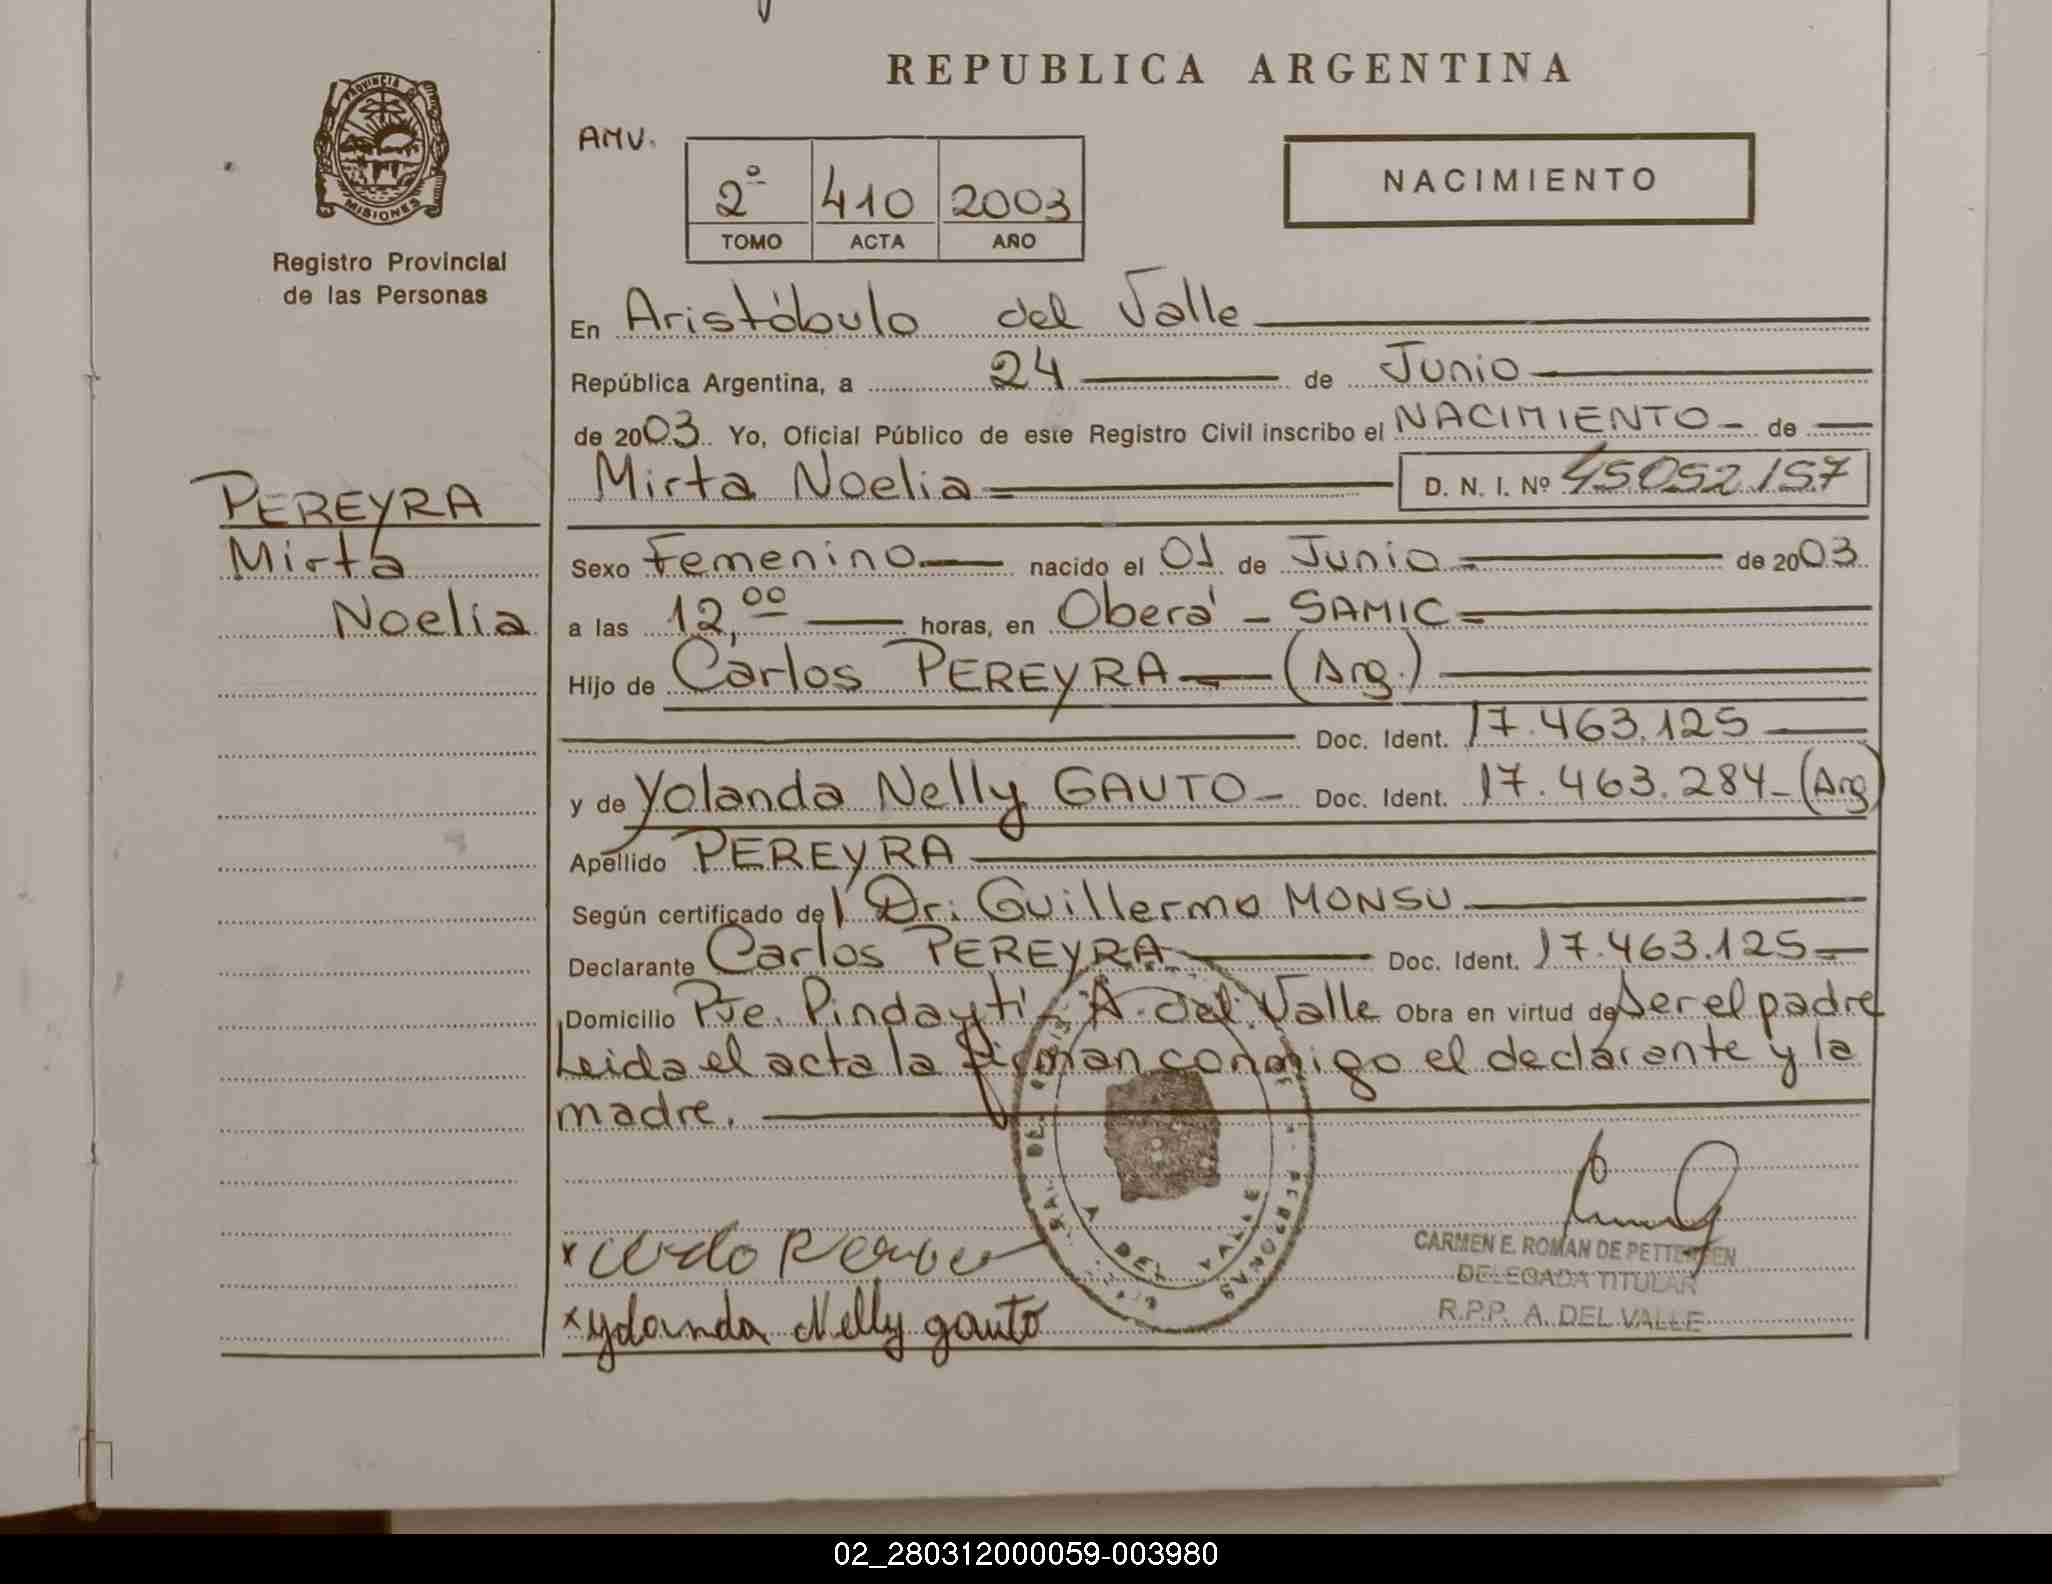 REPUBLICA ARGENTINA
PROVINCIA DE
MISIONES
Registro Provincial
de las Personas
AMV.
2º 410 2003
TOMO ACTA AÑO
NACIMIENTO
En Aristóbulo del Valle
República Argentina, a 24 de Junio
de 2003. Yo, Oficial Público de este Registro Civil inscribo el NACIMIENTO de
Mirta Noelia D. N. I. Nº 45052157
PEREYRA
Mirta
Noelia
Sexo Femenino nacido el 01 de Junio de 2003.
a las 12,00 horas, en Oberá - SAMIC
Hijo de Carlos PEREYRA (Arg.)
Doc. Ident. 17.463.125
y de Yolanda Nelly GAUTO Doc. Ident. 17.463.284 (Arg)
Apellido PEREYRA
Según certificado del Dr: Guillermo MONSU
Declarante Carlos PEREYRA Doc. Ident. 17.463.125
Domicilio Pje. Pindaytí - A. del Valle Obra en virtud de ser el padre
Leida el acta la firman conmigo el declarante y la
madre.
A. DEL VALLE
x
x Yolanda Nelly gauto
CARMEN E. ROMAN DE PETTERSEN
DELEGADA TITULAR
R.P.P. A. DEL VALLE
02_280312000059-003980